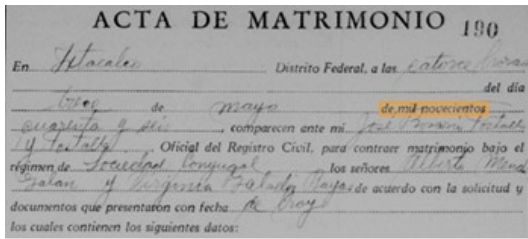 ACTA DE MATRIMONIO 190
En Ixtacalco Distrito Federal, a las catorce horas
del día
trece de mayo de mil novecientos
cuarenta y seis, comparecen ante mí José
y Oficial del Registro Civil, para contraer matrimonio bajo el
régimen de Sociedad Conyugal los señores Alberto
Galan y Virginia Rayas de acuerdo con la solicitud y
documentos que presentaron con fecha de hoy
los cuales contienen los siguientes datos: